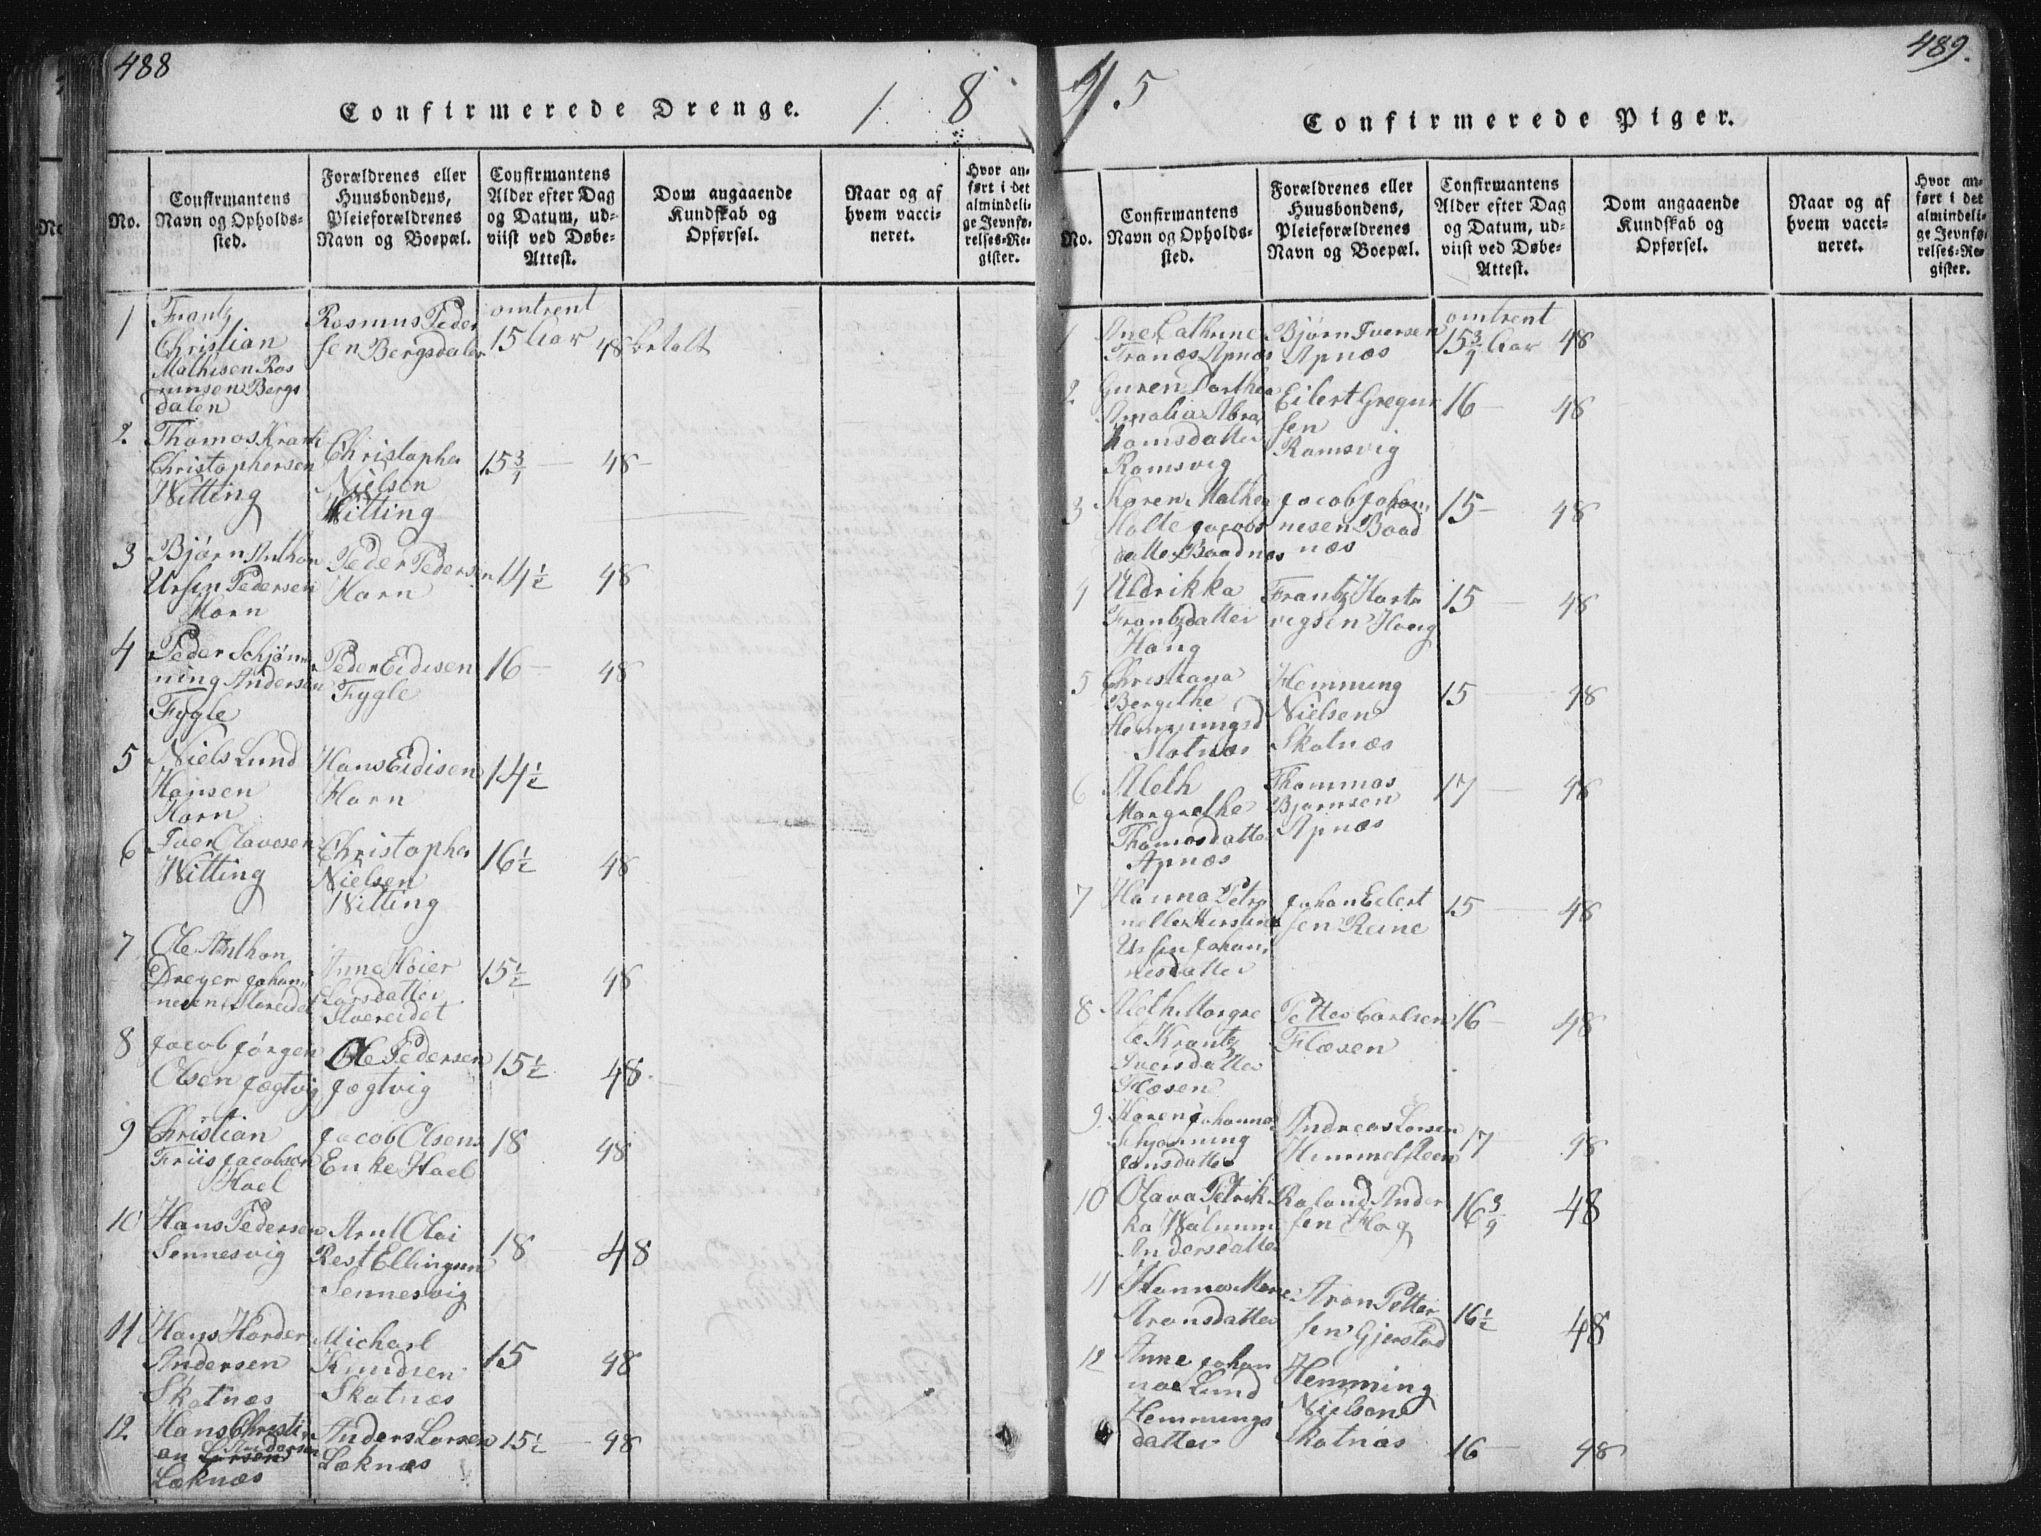 488
Confirmerede Drenge.
1 8
No.
Confirmantens
Navn og Opholds-
sted.
Forældrenes eller
Huusbondens,
Pleieforældrenes
Navn og Boepæl.
Confirmantens
Alder efter Dag
og Datum, ud-
viist ved Døbe-
Attest.
Dom angaaende
Kundskab og
Opførsel.
Naar og af
hvem vacci-
neret.
Hvor an-
ført i det
almindeli-
ge Jevnfø-
relses-Re-
gister.
1
Frantz
Christian
Mathisen Ras
musen Bergs
dalen
Rasmus Peder
sen Bergsdalen
omtrent
15 Aar
48 betalt
2.
Thomas Krantz
Christophersen
Witting
Christopher
Nielsen
Witting
15 3/4
48
3
Bjørn Anthon
Ursin Pedersen
Horn
Peder Pedersen
Horn
14 1/2
48
4
Peder Schjøn
ning Andersen
Fygle
Peder Eidisen
Fygle
16
48
5
Niels Lund
Hansen
Horn
Hans Eidisen
Horn
14 1/2
6
Iver Olavesen
Witting
Christopher
Nielsen
Witting
16 1/2
48
7
Ole Anthon
Dreyer Johan
nesen Storeidet
Anne Høier
Larsdatter
Storeidet
15 1/2
48
8
Jacob Jørgen
Olsen Jægtvig
Ole Pedersen
Jægtvig
15 1/2
48
9
Christian
Friis Jacobsen
Hoel
Jacob Olsens
Enke Hoel
18
48
10
Hans Pedersen
Sennesvig
Arnt Olai
Rest Ellingsen
Sennesvig
18
48
11
Hans Harder
Andersen
Skotnæs
Michael
Knudsen
Skotnæs
15
48
12.
Hans Christi
an Larsen Andersen
Læknæs
Anders Larsen
Læknæs
15 1/2
48
15
489.
Confirmerede Piger.
No.
Confirmantens
Navn og Opholds-
sted.
Forældrenes eller
Huusbondens,
Pleieforældrenes
Navn og Boepæl.
Confirmantens
Alder efter Dag
og Datum, ud-
viist ved Døbe-
Attest.
Dom angaaende
Kundskab og
Opførsel.
Naar og af
hvem vacci-
neret.
Hvor an-
ført i det
almindeli-
ge Jevnfø-
relses-Re-
gister.
1
Ane Cathrine
Apnæs
Bjørn Iversen
Apnæs
omtrent
15 3/4 Aar
48
2
Guren Dorthea
Amalia Abra
hamsdatter
Ramsvig
Eilert Gregur
sen
Ramsvig
16
48
3
Karen Mathea
Holte Jacobs
datter Baadnæs
Jacob Johan
nesen Baad
næs
15
48
4
Uldrikka
Frantzdatter
Hang
Frantz Hartv
rigsen Hang
15
48
5
Christiana
Bergithe
Hemmingsd
Skotnæs
Hemming
Nielsen
Skotnæs
15
48
6
Aleth
Margrethe
Thomasdatter
Apnæs
Thommas
Bjørnsen
Apnæs
17
48
7
Hanna Petro
nelle Kerstine
Ursin Johan
nesdatter
Johan Eilert
sen Reine
15
48
8
Aleth Margre
te Krantz
Iversdatter
Flæsen
Petter Carlsen
Flæsen
16
48
9.
Karen Johanna
Schjønning
Jonsdatter
Andreas Larsen
Himmelsteen
17
48
10
Olava Petrik
ka Walnum
Andersdatter
Roland Ander
sen Hag
16 3/4
48
11
Hanna Mare
Aronsdatter
Aron Petter
sen Gjerstad
16 1/2
48
12
Anne Johan
na Lund
Hemmings
datter
Hemming
Nielsen
Skotnæs
16
48